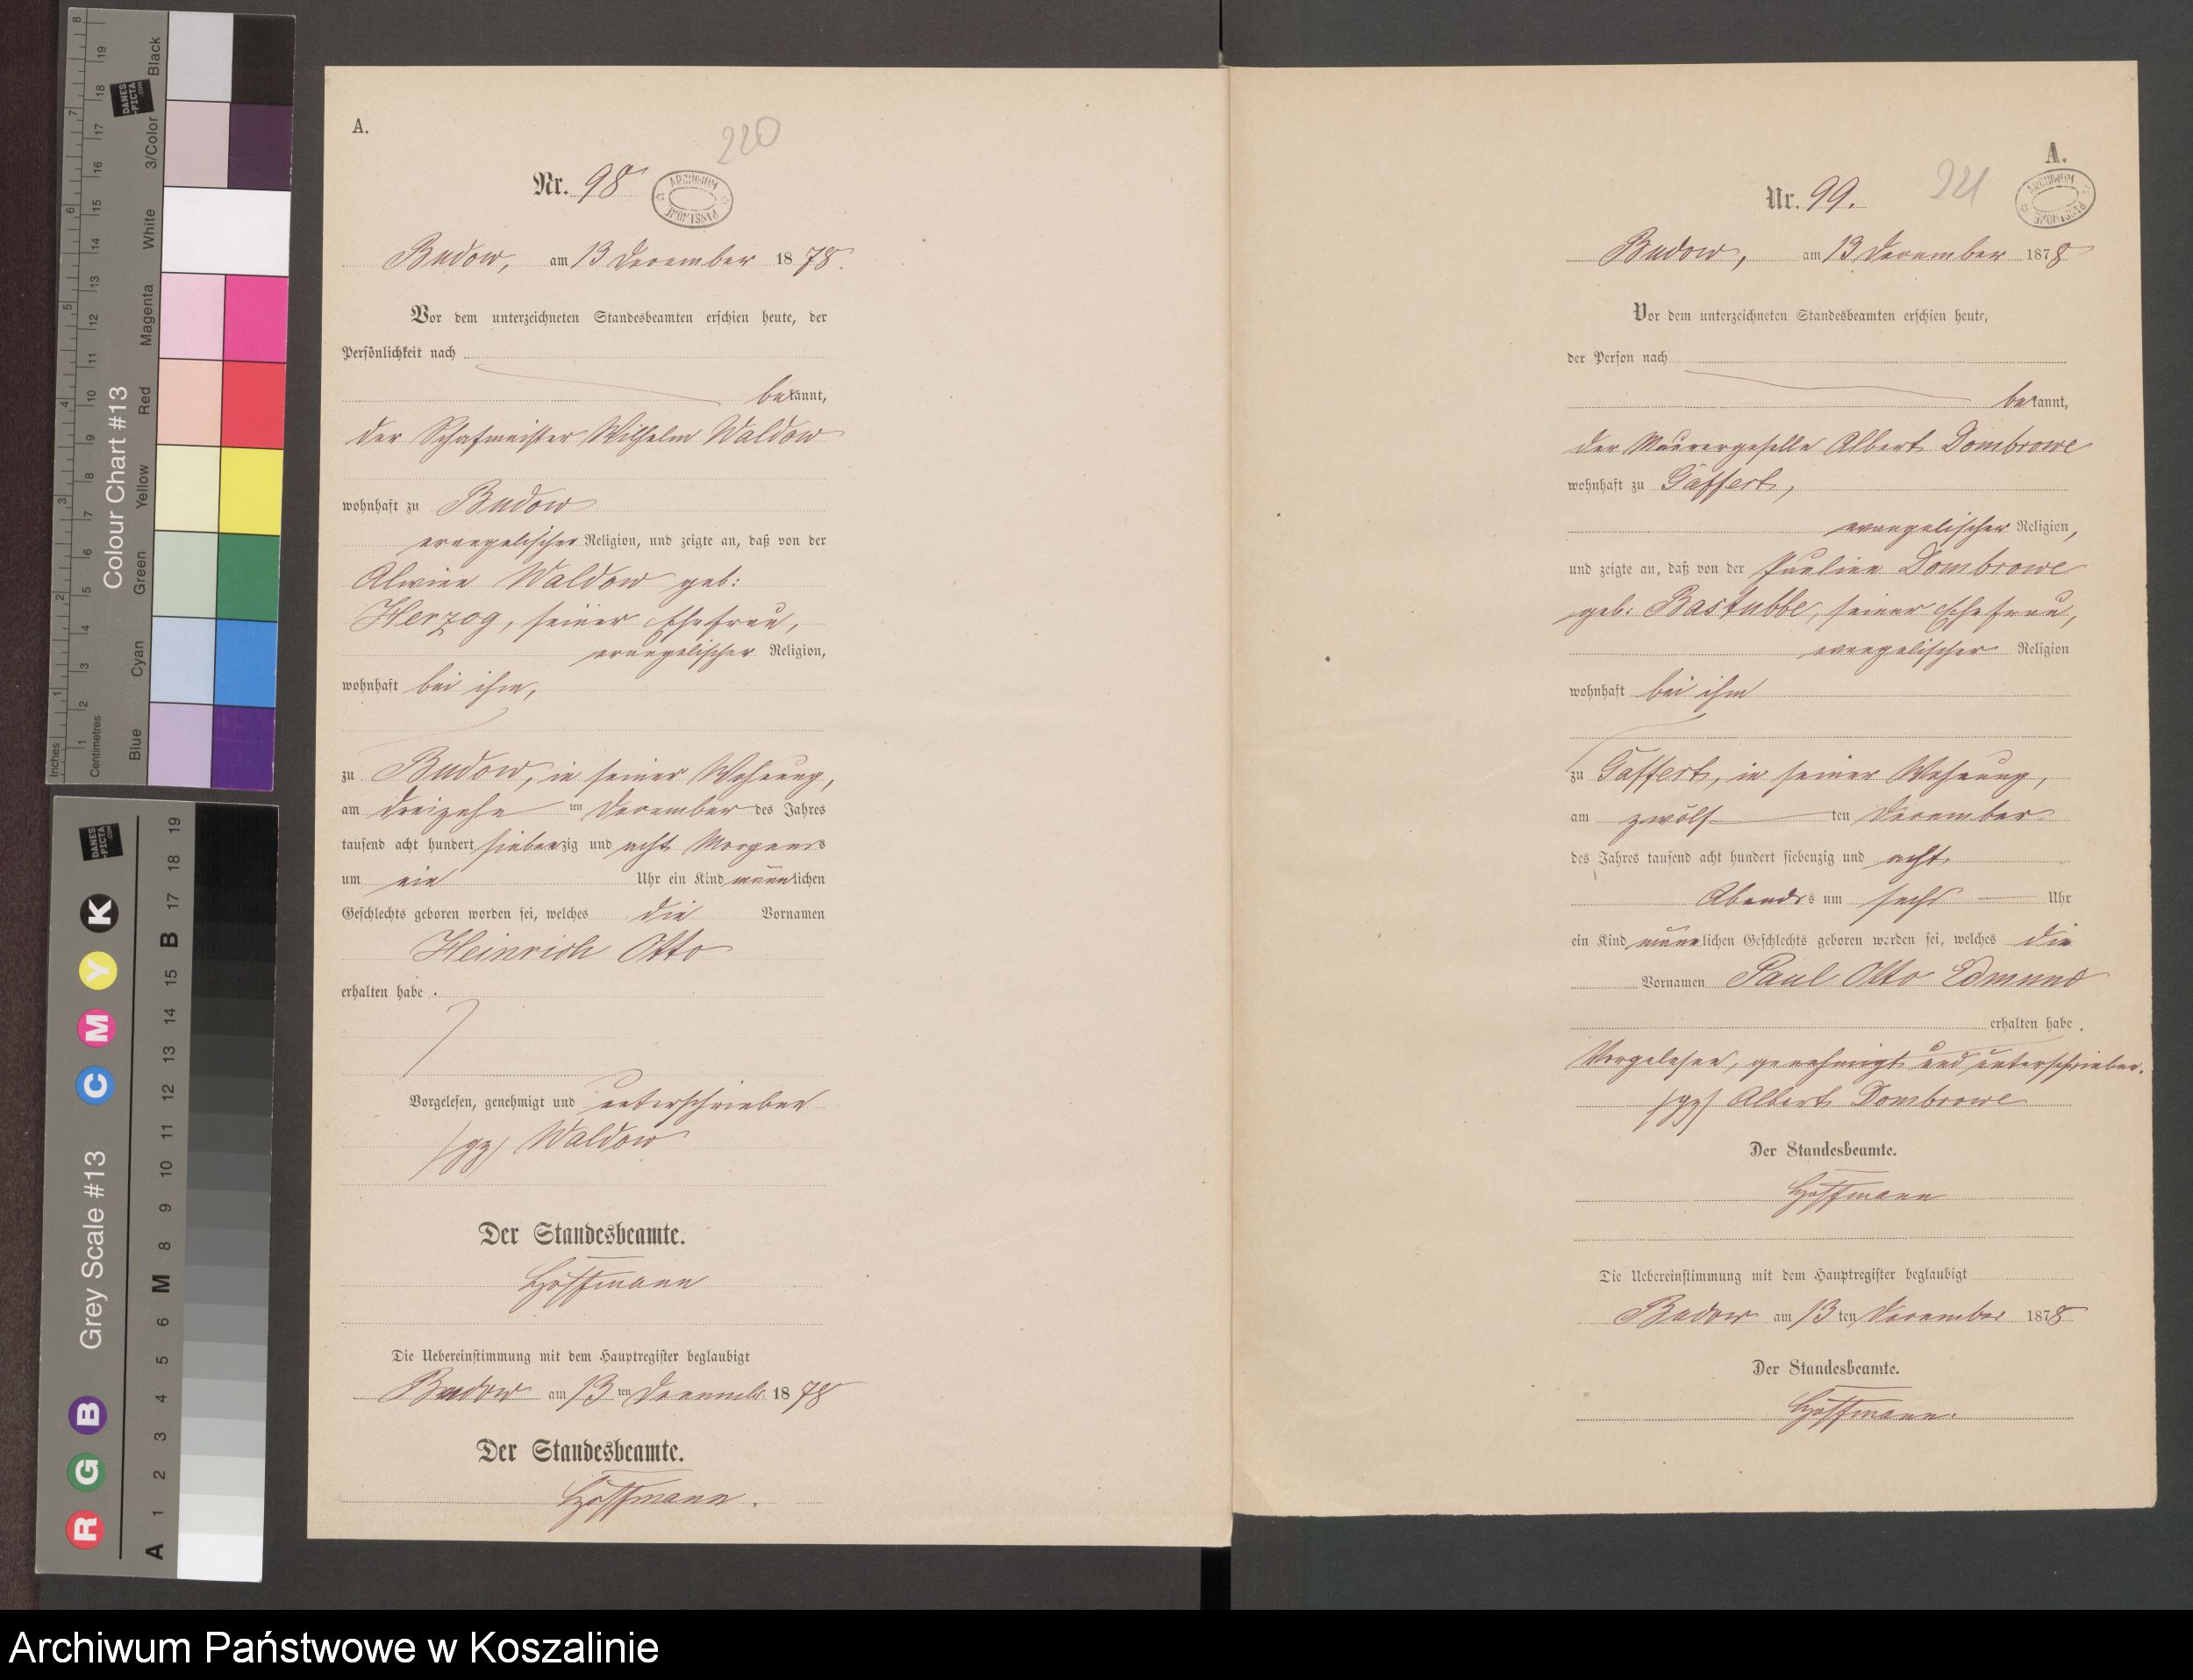 A.
220
Nr. 98
ARCHIWUM PAŃSTWOWE
Budow, am 13 December 1878.
Vor dem unterzeichneten Standesbeamten erschien heute, der
Persönlichkeit nach
bekannt,
der Schafmeister Wilhelm Waldow
wohnhaft zu Budow
evangelischer Religion, und zeigte an, daß von der
Alwine Waldow geb:
Herzog, seiner Ehefrau,
evangelischer Religion,
wohnhaft bei ihm,
zu Budow, in seiner Wohnung,
am dreizehn ten December des Jahres
tausend acht hundert siebenzig und acht Morgens
um ein Uhr ein Kind männlichen
Geschlechts geboren worden sei, welches die Vornamen
Heinrich Otto
erhalten habe.
Vorgelesen, genehmigt und unterschrieben
/gz/ Waldow
Der Standesbeamte.
Hoffmann
Die Uebereinstimmung mit dem Hauptregister beglaubigt
Budow am 13 ten Decemb. 1878
Der Standesbeamte.
Hoffmann.
A.
221
Nr. 99.
ARCHIWUM PAŃSTWOWE
Budow, am 13 December 1878
Vor dem unterzeichneten Standesbeamten erschien heute,
der Person nach
bekannt,
der Maurergeselle Albert Dombrowe
wohnhaft zu Gaffert,
evangelischer Religion,
und zeigte an, daß von der Pauline Dombrowe
geb: Bastubbe, seiner Ehefrau,
evangelischer Religion
wohnhaft bei ihm
zu Gaffert, in seiner Wohnung,
am zwölf ten December
des Jahres tausend acht hundert siebenzig und acht
Abends um sechs Uhr
ein Kind männlichen Geschlechts geboren worden sei, welches die
Vornamen Paul Otto Edmund
erhalten habe.
Vorgelesen, genehmigt und unterschrieben.
/gz/ Albert Dombrowe
Der Standesbeamte.
Hoffmann
Die Uebereinstimmung mit dem Hauptregister beglaubigt
Budow am 13 ten December 1878
Der Standesbeamte.
Hoffmann.
Colour Chart #13
Blue Cyan Green Yellow Red Magenta White 3/Color Black
Inches 1 2 3 4 5 6 7 8
Centimetres 1 2 3 4 5 6 7 8 9 10 11 12 13 14 15 16 17 18 19
DANES-PICTA.COM
Grey Scale #13
R G B C M Y K
A 1 2 3 4 5 6 M 8 9 10 11 12 13 14 15 B 17 18 19
DANES-PICTA.COM
Archiwum Państwowe w Koszalinie